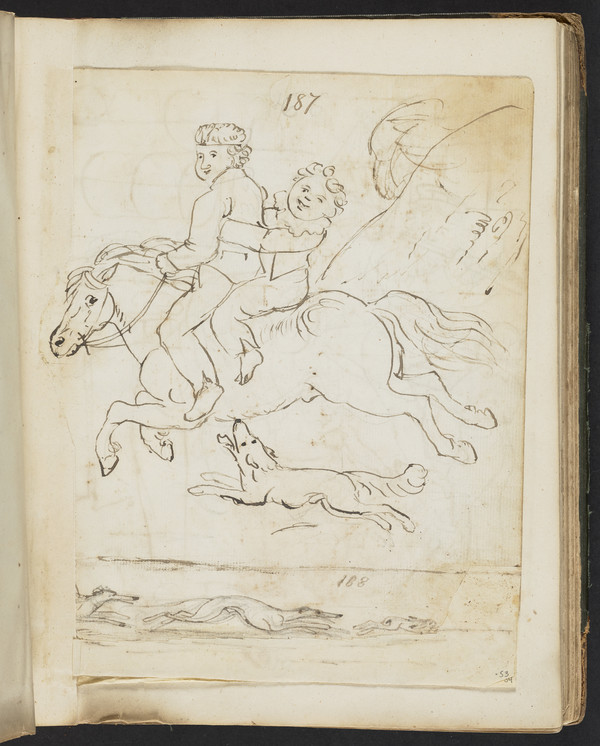 187
188
.53
04